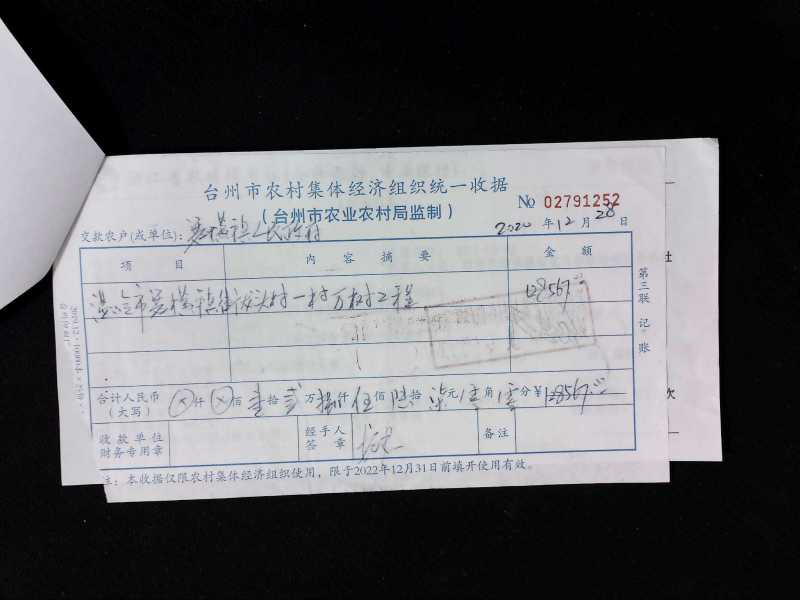 台州市农村集体经济组织统一收据
(台州市农业农村局监制)
No 02791252
交款农户(或单位): 箬横镇人民政府
2020 年 12 月 28 日
项 目 内 容 摘 要 金 额
温岭市箬横镇街头村一村万树工程 128567.00
合计人民币(大写) ⊗仟 ⊗佰 壹拾 贰万 捌仟 伍佰 陆拾 柒元 零角 零分 ¥128567.00
收款单位财务专用章 经手人签章 备注
注：本收据仅限农村集体经济组织使用，限于2022年12月31日前填开使用有效。
第三联 记账